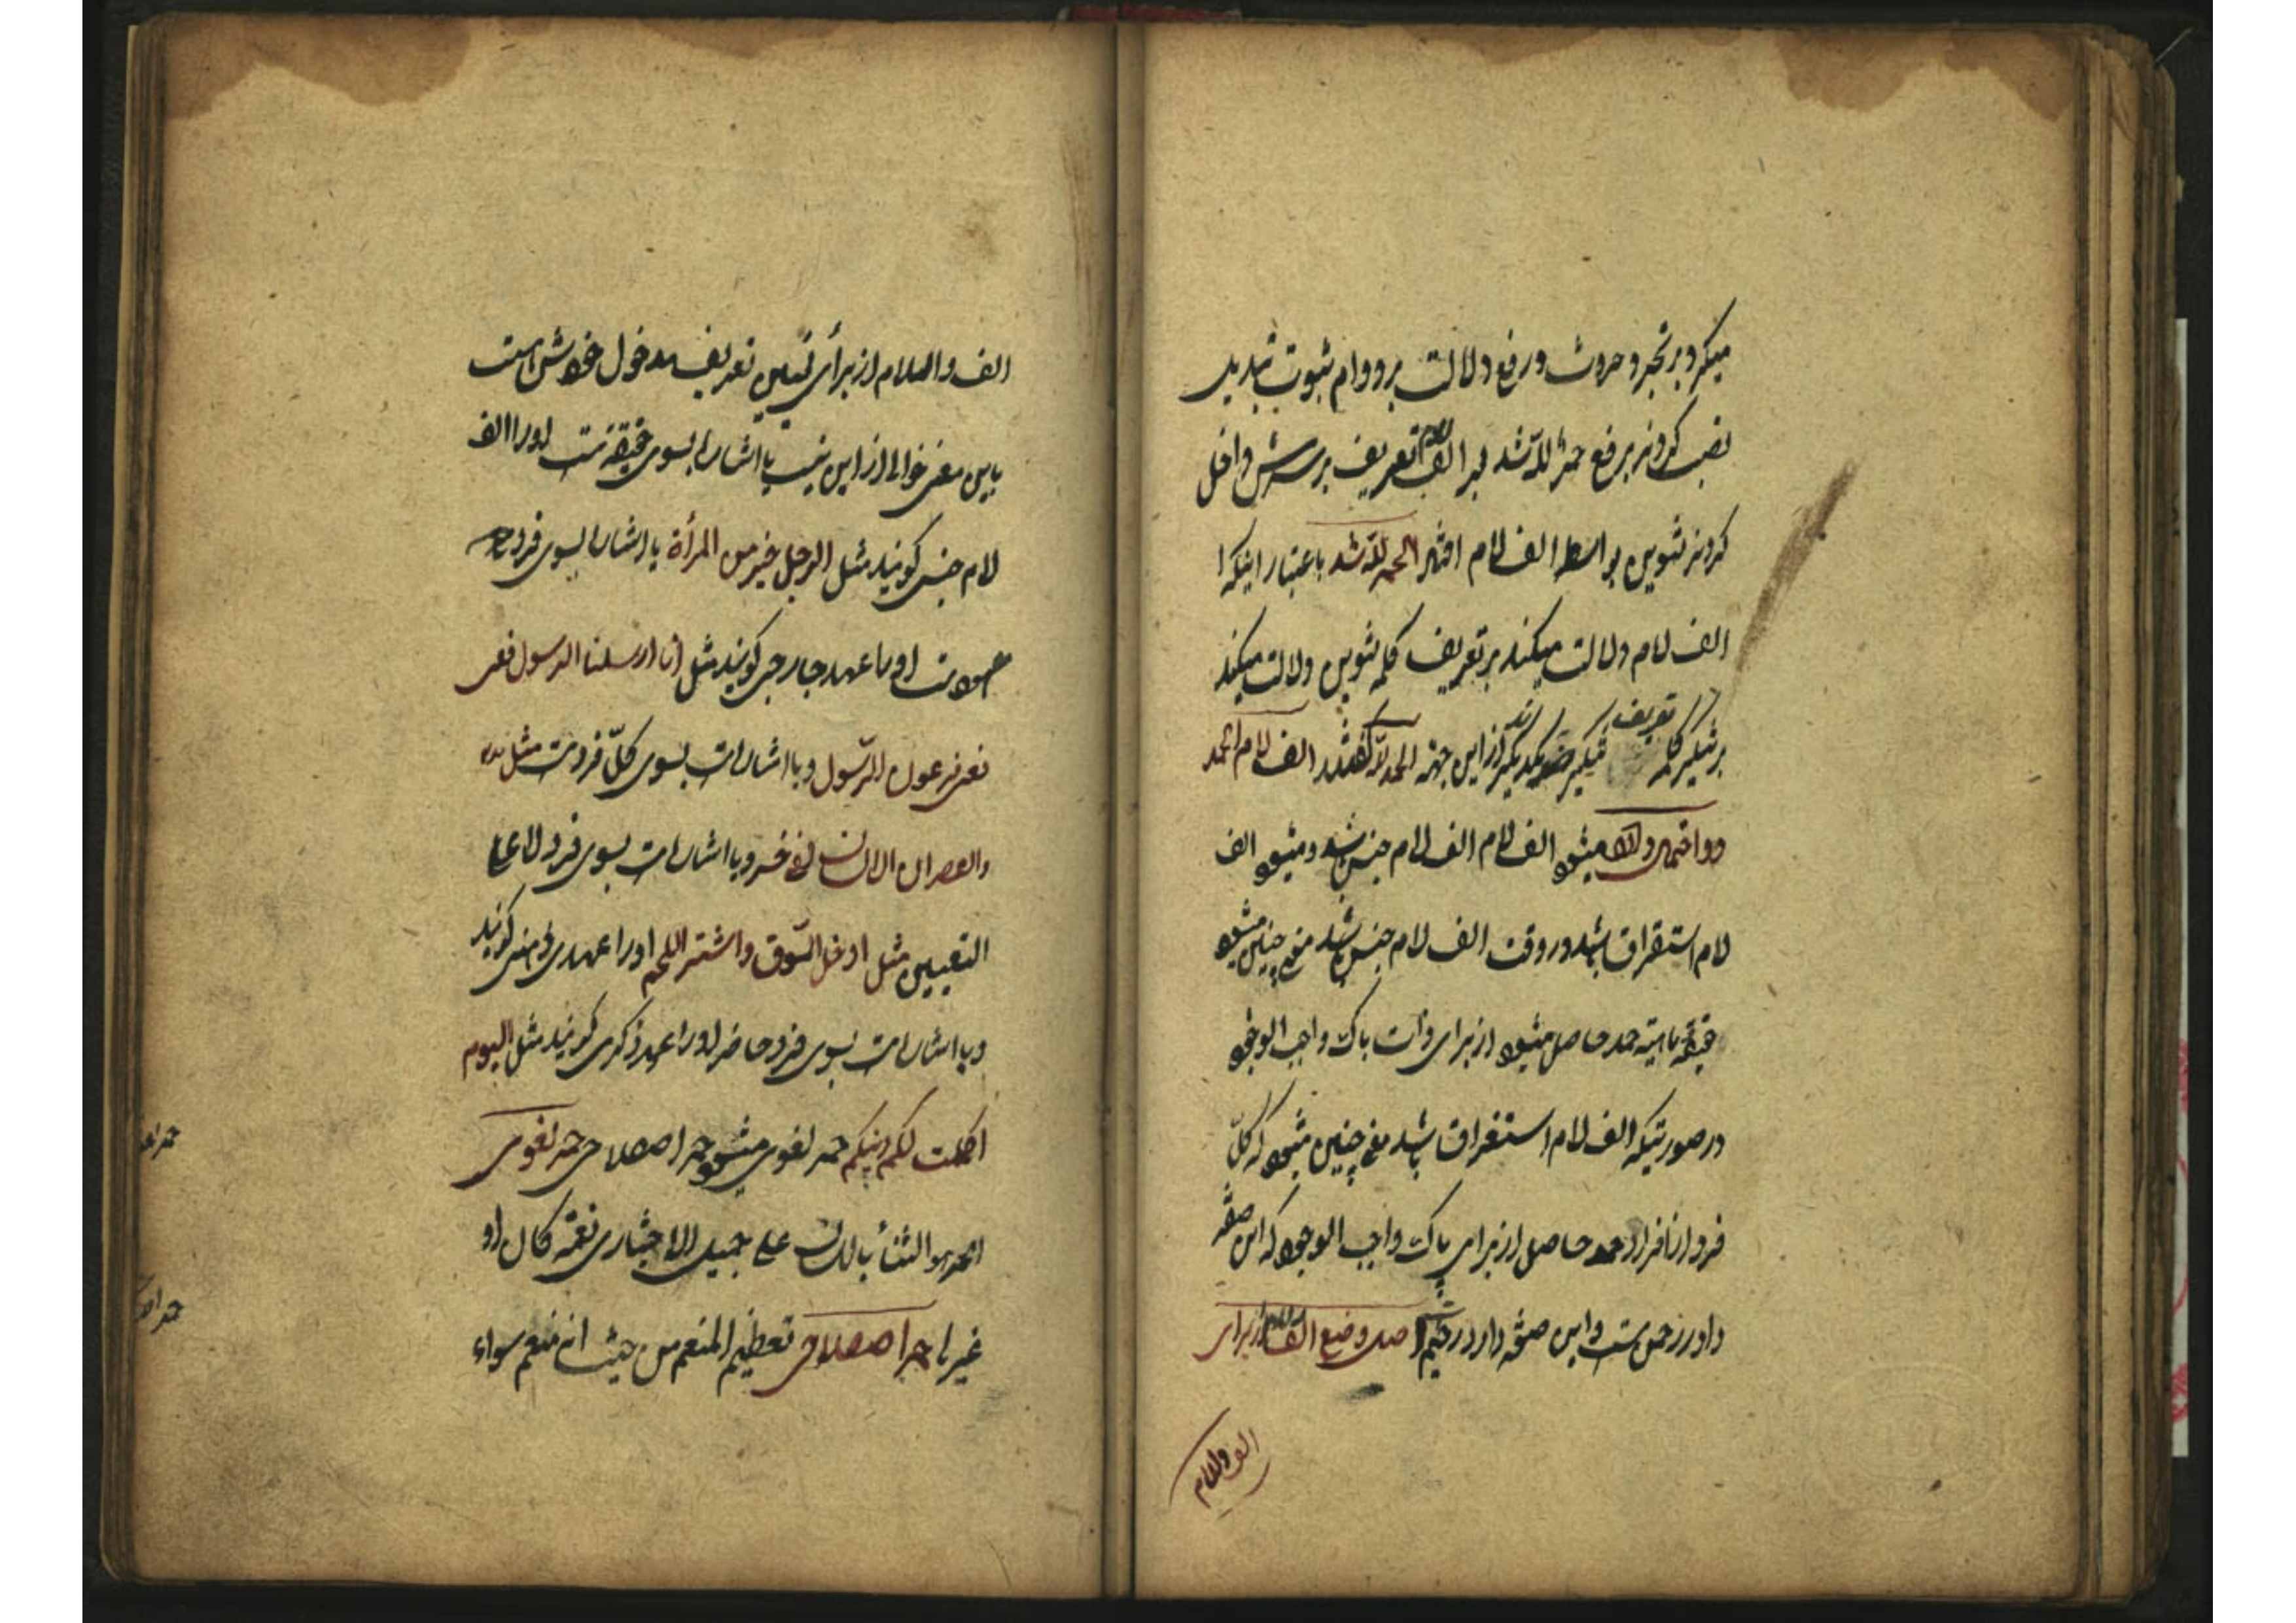 میکرد بر تجرد و حدوث و رفع دلالت بر دوام ثبوت تبدیل
نصب کردند بر رفع حمدٌ للّه شد بعد الف لام تعریف بر سرش داخل
کردند تنوین بواسطه الف لام افتاد الحمد للّه شد باعتبار اینکه
الف لام دلالت میکند بر تعریف کلمه تنوین دلالت میکند
بر تنکیر کلمه تعریف تنکیر ضد یکدیکرند از این جهة الحمد للّه کفته شد الف لام الحمد
دو احتمال دارد میشود الف لام الف لام جنس باشد و میشود الف
لام استقراق باشد در وقت الف لام جنس باشد معنی چنین میشود
حقیقة ماهیته حمد حاصل میشود از برای ذات پاک واجب الوجود
در صورتیکه الف لام استغراق باشد معنی چنین میشود که کلّ
فرد از افراد حمد حاصل از برای پاک واجب الوجود که این صفة
دارد رحمن ست و این صفة دارد رحیم ست اصل وضع الف لام از برای
الف و اللام
الف و اللام از برأی تبیین تعریف مدخول خودش است
باین معنی خوالی از این نیست یا اشاره بسوی حقیقة ست او را الف
لام جنس کویند مثل الرجل خیر من المرأة یا اشاره بسوی فرد
معهود ست او را عهد خارجی کویند مثل انا ارسلنا الرسول فعصی
فعصی فرعون الرّسول و یا اشارات بسوی کلّ فرد ست مثل
والعصر ان الانسان لفی خسر و یا اشارات بسوی فرد لا علی
التعیین مثل ادخل السّوق واشتر اللحم او را عهدی ذهنی کویند
و یا اشارات بسوی فرد حاضر او را عهد ذکری کویند مثل الیوم
اکملت لکم دینکم حمد لغوی میشود حمد اصطلاحی حمد لغوی
الحمد هو الثنأ باللسان علی جمیل الاختیاری نعمة کان او
غیرها حمد اصطلاحی تعظیم المنعم من حیث انه منعم سواء